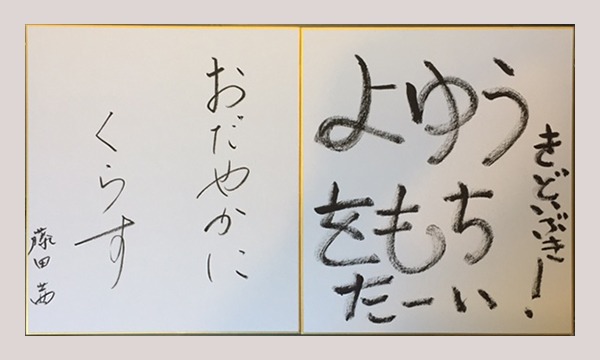 おだやかに
くらす
藤田茜
よゆう
をもち
たーい
きどいぶき!